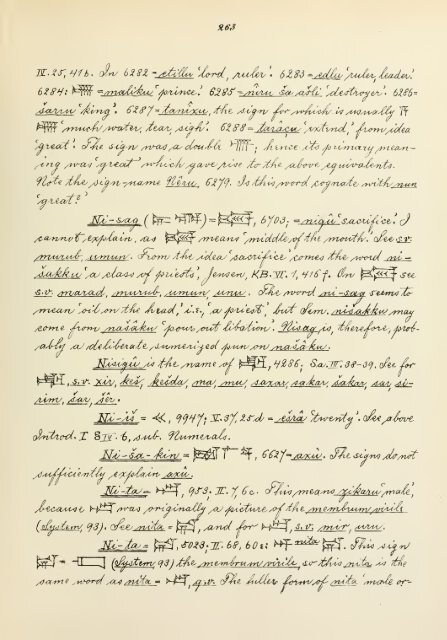 263
IV. 25, 41 b. In 6282 = etillu 'lord, ruler'. 6283 = edlu 'ruler, leader.'
6284: = maliku 'prince.' 6285 = nîru ša ašli 'destroyer'. 6286 =
šarru 'king'. 6287 = tanîxu, the sign for which is usually
'much water, tear, sigh'. 6288 = taraçu 'extend,' from idea
'great'. The sign was a double ; hence its primary mean-
ing was 'great' which gave rise to the above equivalents.
Note the sign-name Nêru, 6279. Is this word cognate with nun
'great?'
Ni-sag ( ) = , 6703; = niqû 'sacrifice.' I
cannot explain, as means 'middle of the mouth.' See s.v.
murub, umun. From the idea 'sacrifice' comes the word ni-
šakku 'a class of priests', Jensen, KB. VI. 1, 416 f. On see
s.v. marad, murub, umun, unu. The word ni-sag seems to
mean 'oil on the head,' i.e., 'a priest', but Sem. nišakku may
come from našâku 'pour out libation'. Nisag is, therefore, prob-
ably a deliberate sumerized pun on našâku.
Nisigû is the name of , 4286; Sa. III. 38-39. See for
, s.v. xir, keš, keida, ma, mu, saxar, sakar, šakar, sar, si-
rim, šar, šêr.
Ni-iš = , 9947; V. 37, 25 d = ešrâ 'twenty'. See above
Introd. I § IV. 6, sub. Numerals.
Ni-ša-kin = , 6627 = axû. The signs do not
sufficiently explain axû.
Ni-ta = , 953; II. 7, 6 c. This means zikaru 'male',
because was originally a picture of the membrum virile
(System, 93). See nita = , and for , s.v. mir, uru.
Ni-ta = , 5023; II. 68, 60 e: nita . This sign
= (System, 93) the membrum virile, so this nita is the
same word as nita = , q.v. The fuller form of nita 'male or-